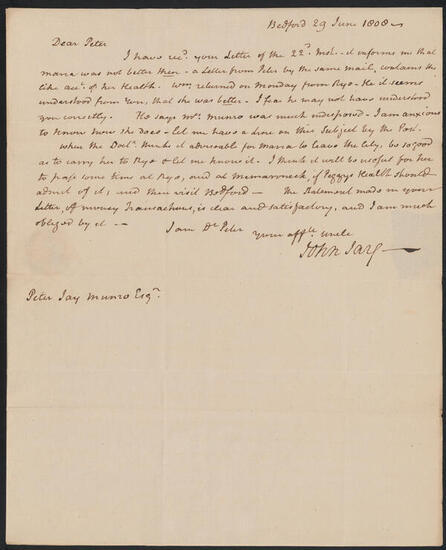 Bedford 29 June 1808
Dear Peter
I have recd. your Letter of the 22d. Inst. - it informs me that
maria was not better then - a Letter from Peter by the same mail, contains the
like acct. of her Health. Wm. returned on Monday from Rye - He it seems
understood from you, that she was better - I fear he may not have understood
you correctly. He says Mrs. Munro was much indisposed - I am anxious
to know how she does - let me have a line on this Subject by the Post.
When the Doctr. thinks it adviseable for maria to leave the City, be so good
as to carry her to Rye & let me know it. I think it will be useful for her
to pass some time at Rye, and at Mamaroneck, if Peggys Health should
admit of it; and then visit Bedford - The Statement made in your
Letter, of money Transactions, is clear and satisfactory, and I am much
obliged by it - -
I am Dr. Peter
your affte. uncle
John Jay
Peter Jay Munro Esqr.